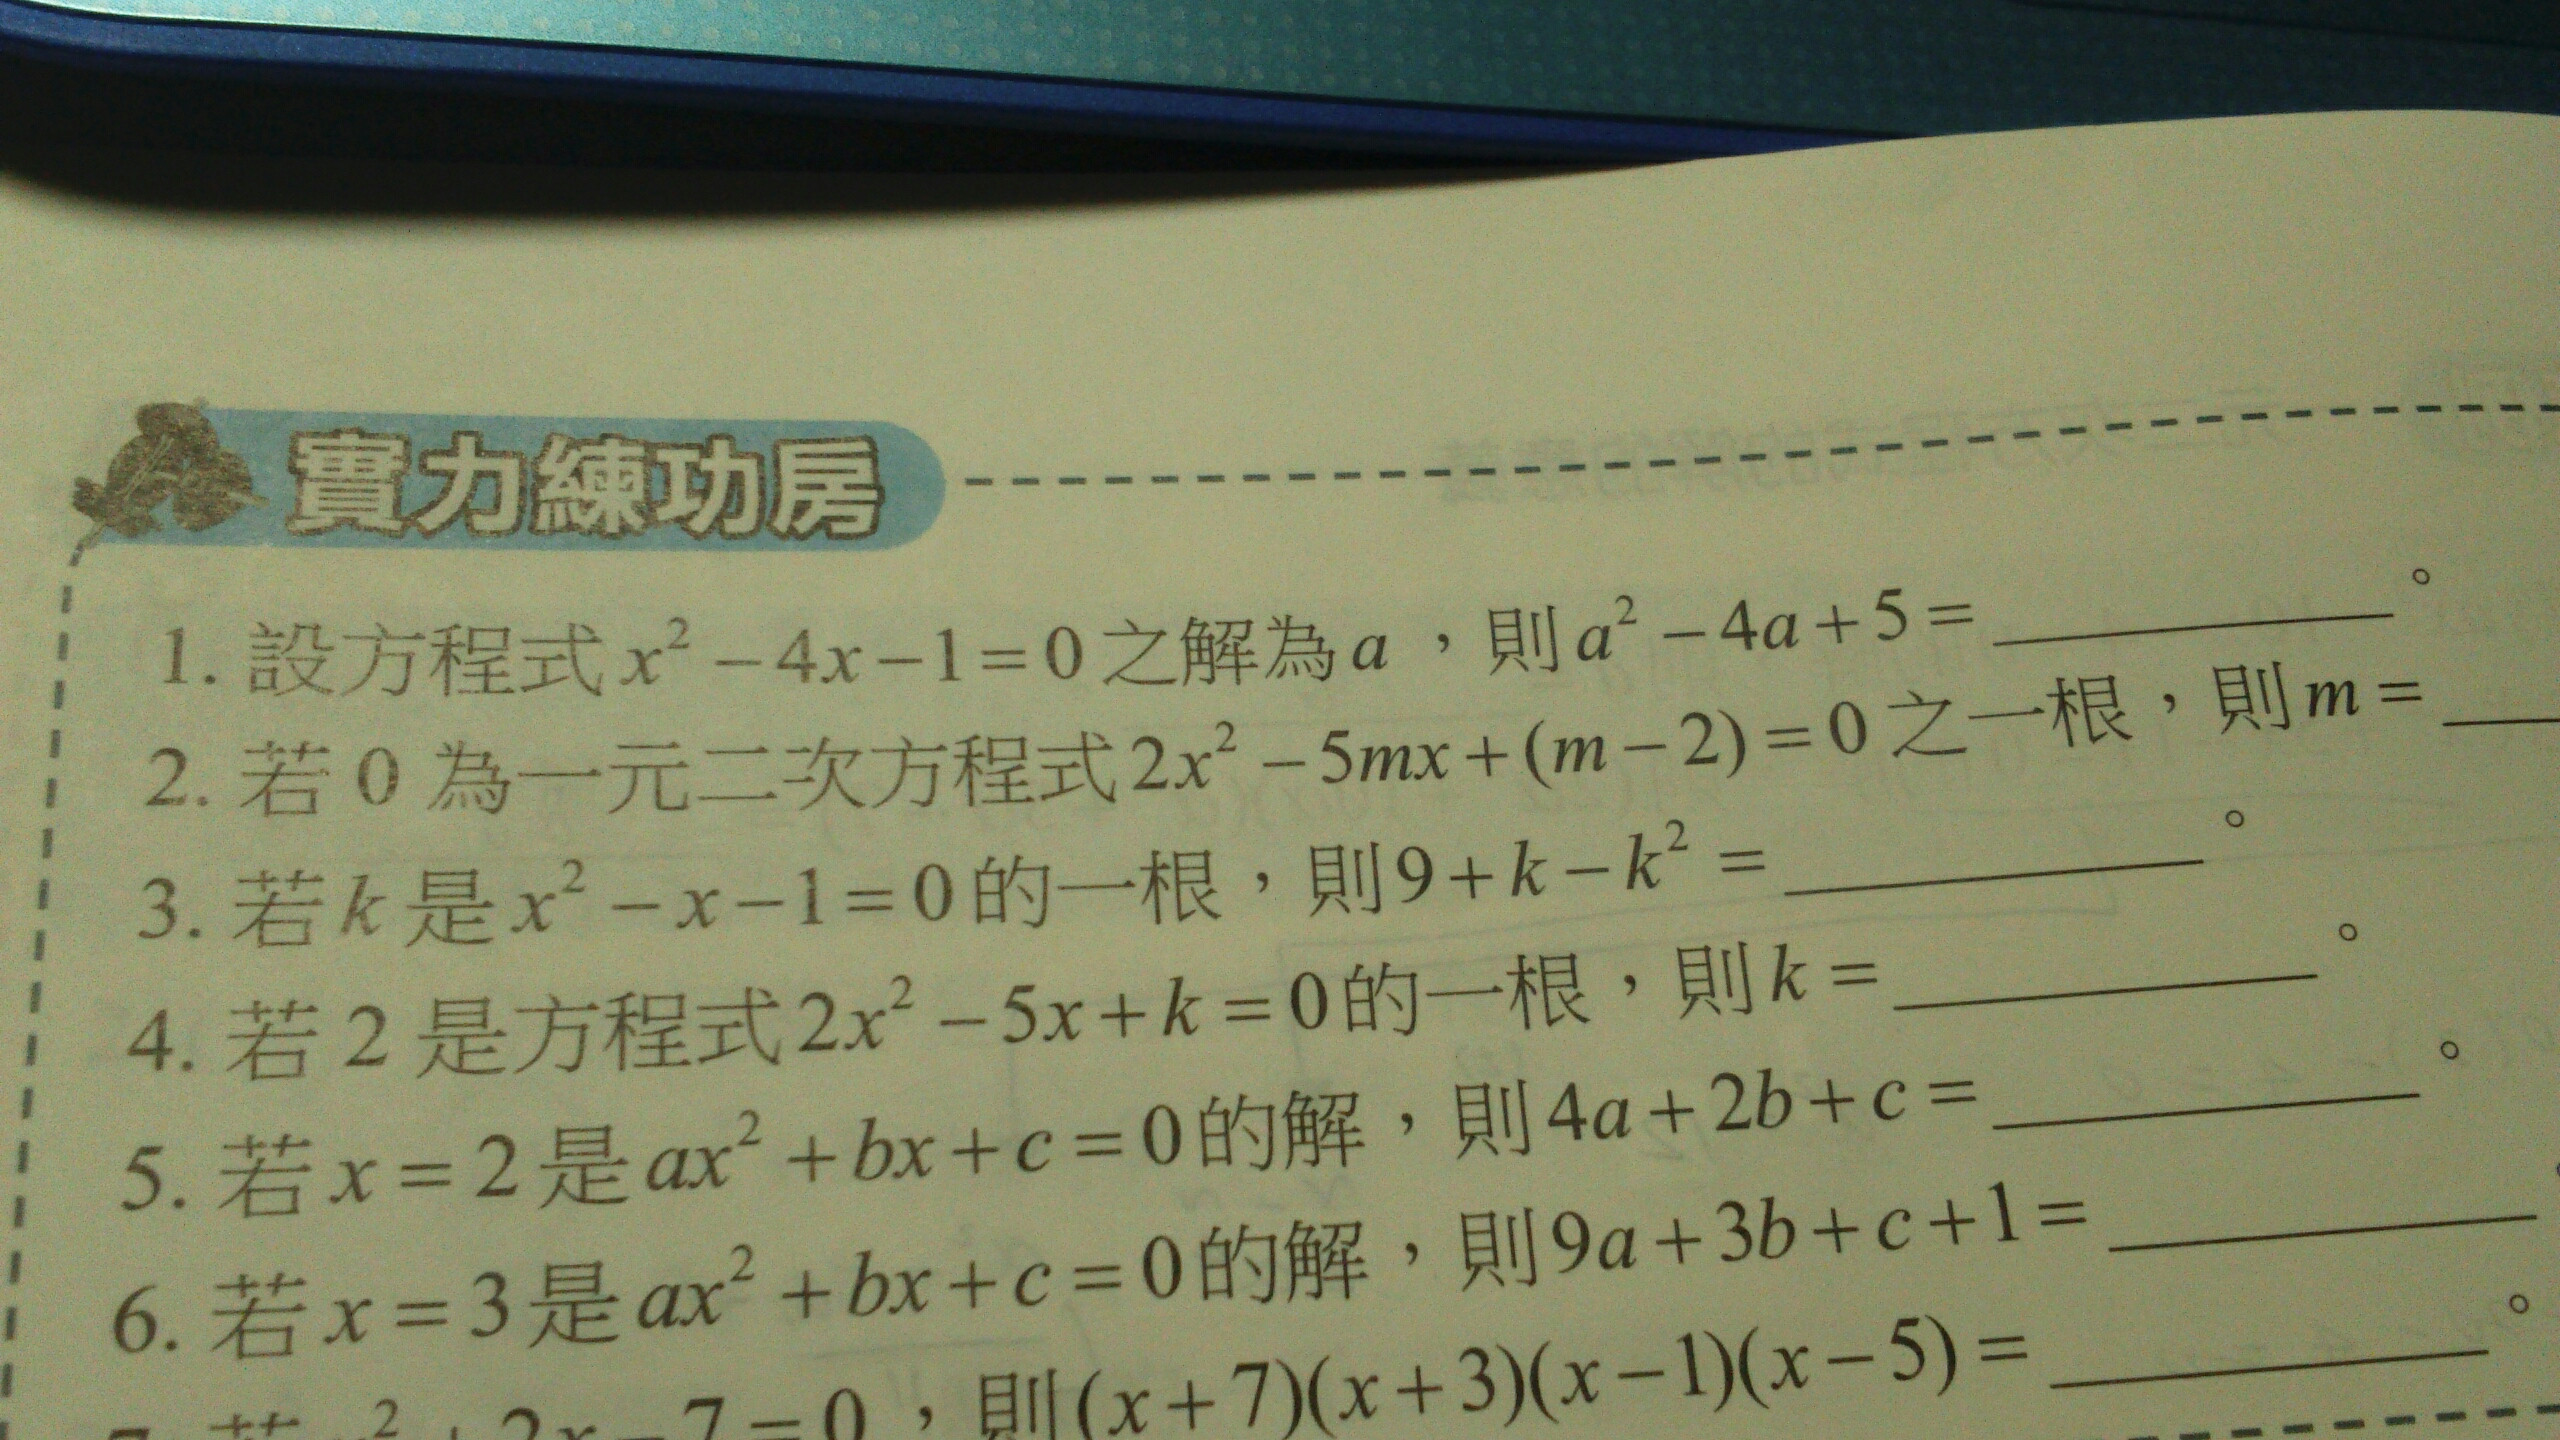 實力練功房
1. 設方程式 x² − 4x − 1 = 0 之解為 a ,則 a² − 4a + 5 = ________。
2. 若 0 為一元二次方程式 2x² − 5mx + (m − 2) = 0 之一根,則 m = ____
3. 若 k 是 x² − x − 1 = 0 的一根,則 9 + k − k² = ________。
4. 若 2 是方程式 2x² − 5x + k = 0 的一根,則 k = ________。
5. 若 x = 2 是 ax² + bx + c = 0 的解,則 4a + 2b + c = ________。
6. 若 x = 3 是 ax² + bx + c = 0 的解,則 9a + 3b + c + 1 = ________
7. 若 x² + 2x − 7 = 0 ,則 (x + 7)(x + 3)(x − 1)(x − 5) = ________。